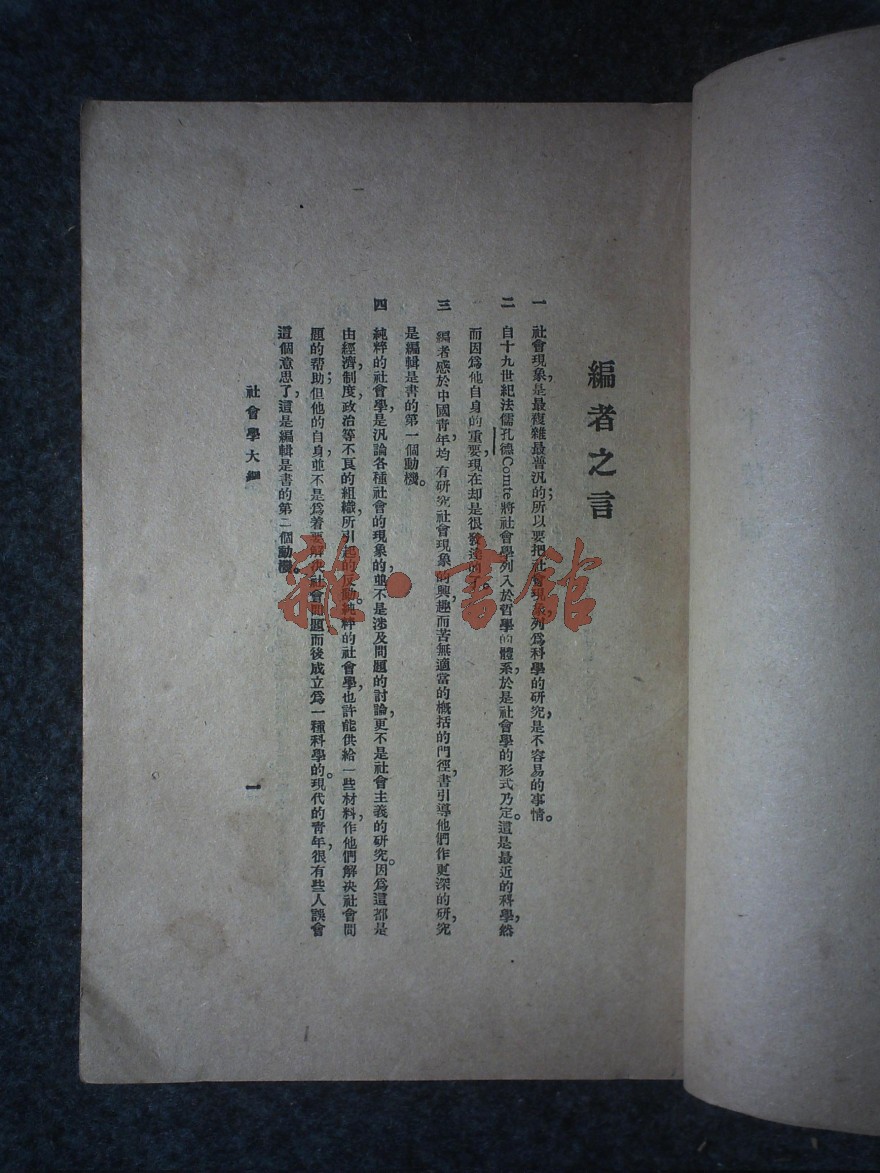 編者之言
一　社會現象，是最複雜最普汎的；所以要把社會現象列爲科學的研究，是不容易的事情。
二　自十九世紀法儒孔德Comte將社會學列入於哲學的體系，於是社會學的形式乃定。這是最近的科學，然
而因爲他自身的重要，現在却是很發達的了。
三　編者感於中國青年，均有研究社會現象的興趣，而苦無適當的槪括的門徑書，引導他們作更深的研究，
是編輯是書的第一個動機。
四　純粹的社會學，是汎論各種社會的現象的，並不是涉及問題的討論，更不是社會主義的研究。因爲這都是
由經濟，制度，政治等不良的組織，所引起的反動。純粹的社會學，也許能供給一些材料，作他們解决社會問
題的帮助；但他的自身，並不是爲着要解决社會問題，而後成立爲一種科學的。現代的青年，很有些人誤會
這個意思了，這是編輯是書的第二個動機。
社會學大綱
一
雜·書館